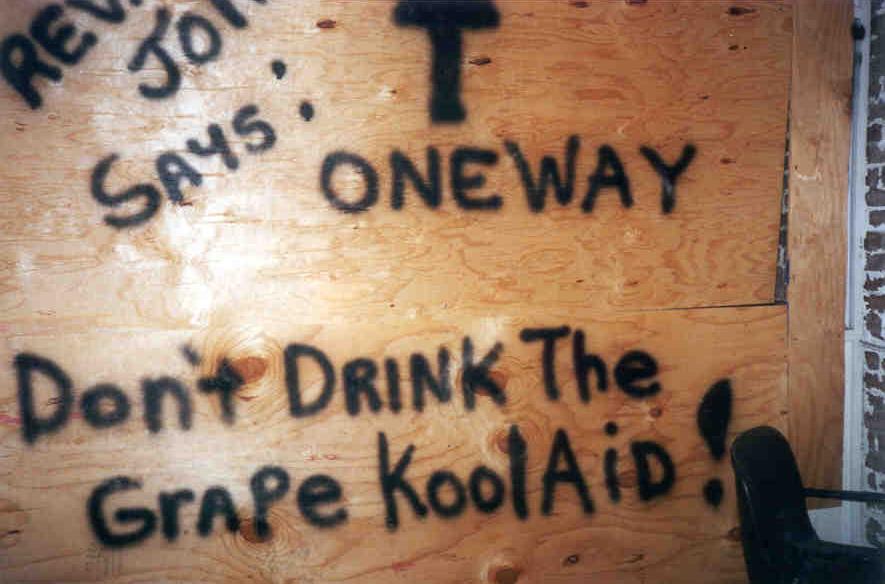 REV.
SAYS:
ONEWAY
Don't DRINK The
GRAPe KoolAiD!